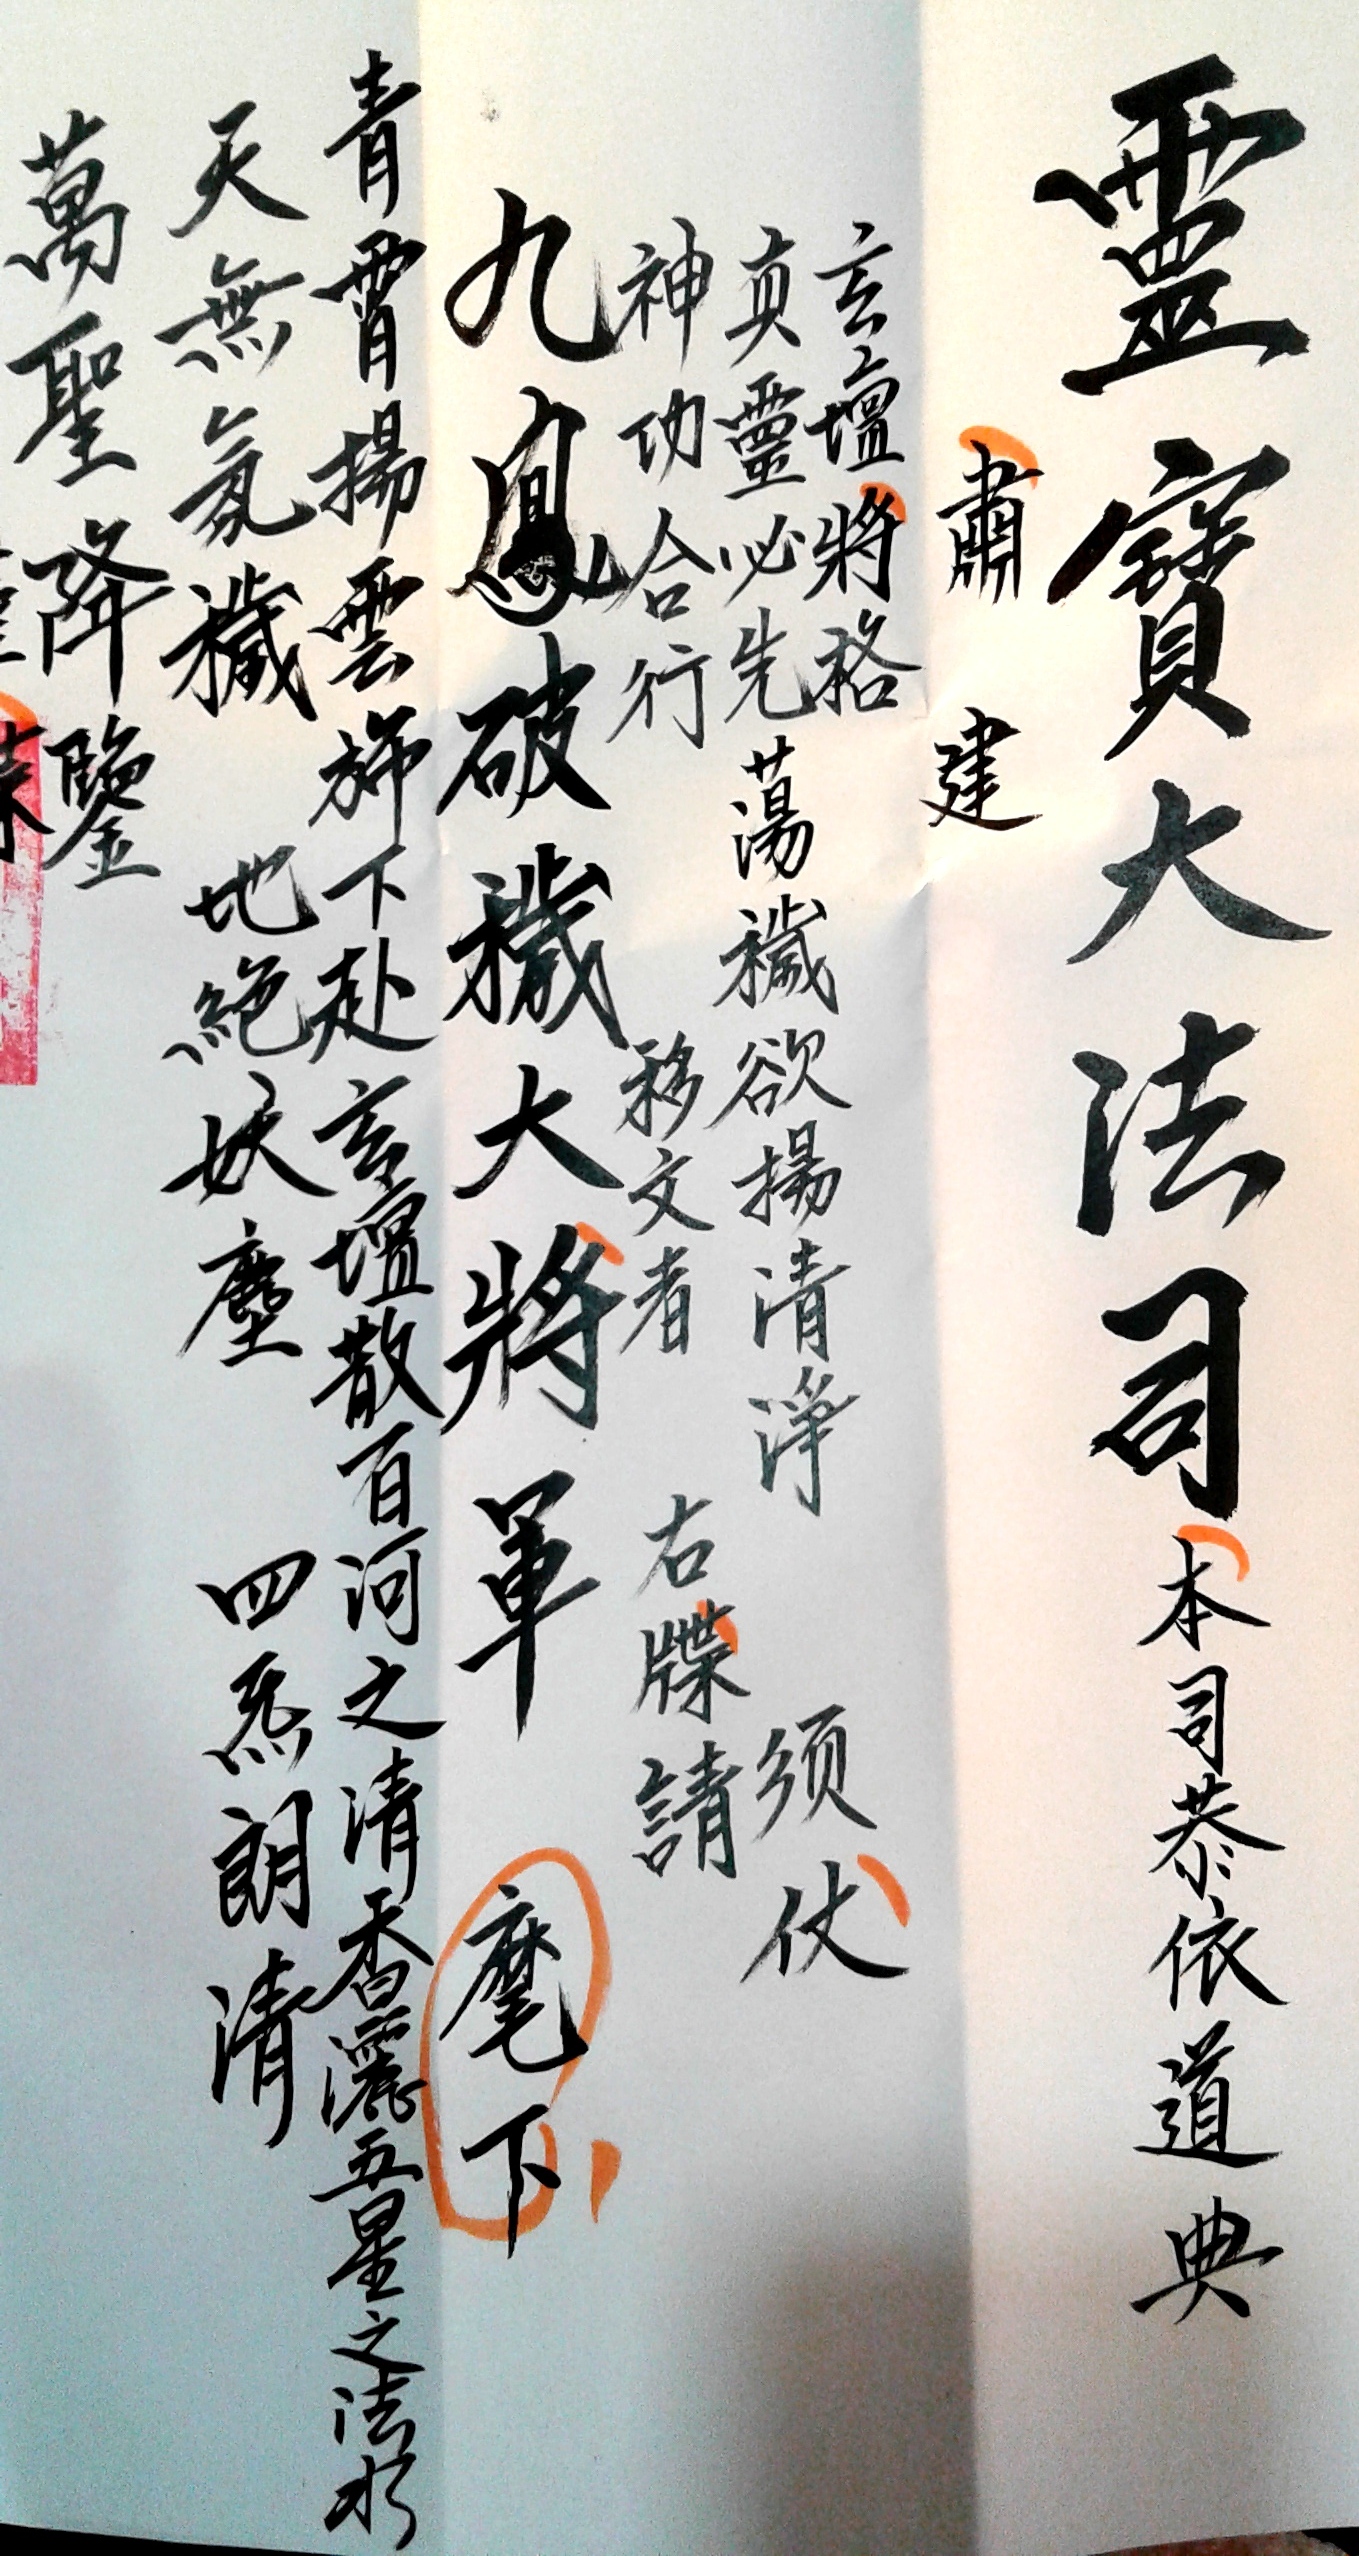 靈寶大法司本司恭依道典
肅建
玄壇將格
真靈必先蕩穢欲揚清淨須仗
神功合行移文者右牒請
九鳳破穢大將軍麾下
青霄揚雲旆下赴玄壇散百河之清香灑五星之法水
天無氛穢地絕妖塵四炁朗清
萬聖降鑒